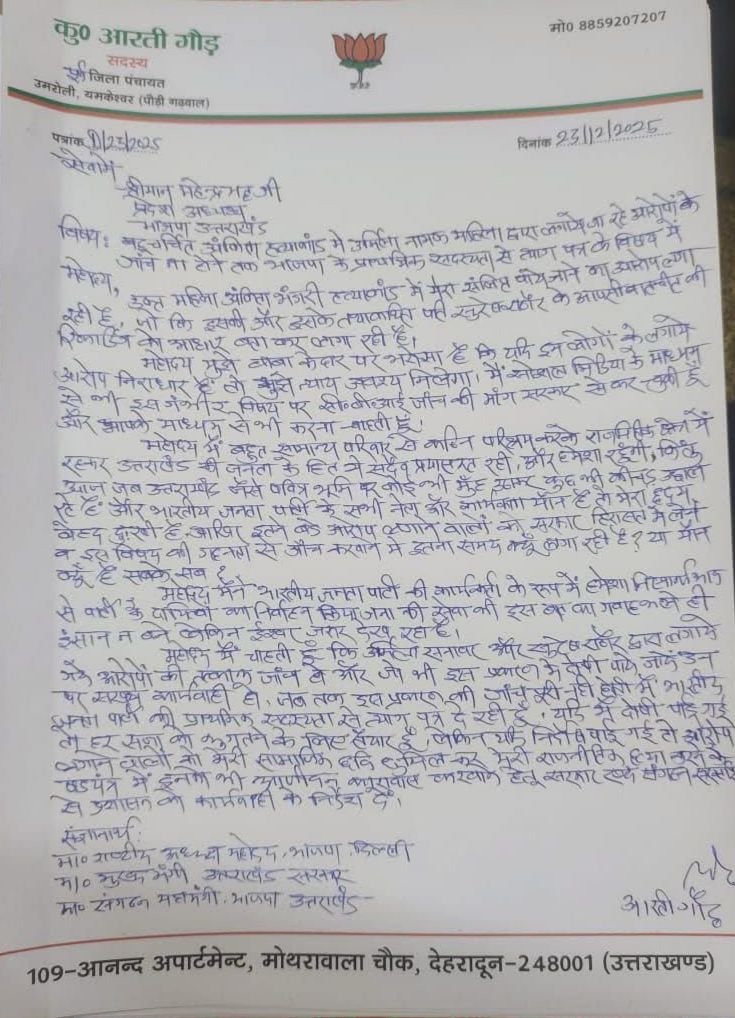 कु0 आरती गौड़
मो0 8859207207
सदस्य
पूर्व जिला पंचायत
उमरोली, यमकेश्वर (पौड़ी गढ़वाल)
पत्रांक 01/23/2025
दिनांक 23/12/2025
सेवा में
श्रीमान महेन्द्र भट्ट जी
प्रदेश अध्यक्ष
भाजपा उत्तराखंड
विषय: बहुचर्चित अंकिता हत्याकांड में उर्मिला नामक महिला द्वारा लगाये जा रहे आरोपों के
जांच ना होने तक भाजपा के प्राथमिक सदस्यता से त्याग पत्र के विषय में
महोदय,
उक्त महिला अंकिता भंडारी हत्याकांड में मेरा संलिप्त पाये जाने का आरोप लगा
रही है, जो कि इसकी और इसके तथाकथित पति सुरेश राठौर के आपसी बातचीत की
रिकार्डिंग को आधार बना कर लगा रही है।
महोदय मुझे बाबा केदार पर भरोसा है कि यदि इन लोगों के लगाये
आरोप निराधार हैं तो मुझे न्याय अवश्य मिलेगा। मैं सोशल मिडिया के माध्यम
से भी इस गंभीर विषय पर सी.बी.आई जांच की मांग सरकार से कर चुकी हूँ
और आपके माध्यम से भी करना चाहती हूँ।
महोदय मैं बहुत सामान्य परिवार से कठिन परिश्रम करके राजनितिक क्षेत्र में
रहकर उत्तराखंड की जनता के हित में सदैव प्रयासरत रही, और हमेशा रहूँगी, किंतु
आज जब उत्तराखंड जैसे पवित्र भूमि पर कोई भी मुँह उठाकर कुछ भी कीचड़ उछाल
रहे हैं और भारतीय जनता पार्टी के सभी नेता और कार्यकर्ता मौन हैं तो मेरा हृदय
बेहद दुःखी है, आखिर इतने बड़े आरोप लगाने वालों को सरकार हिरासत में लेने
व इस विषय की गहनता से जाँच करवाने में इतना समय क्यूँ लगा रही है? या मौन
क्यूँ हैं सबके सब?
महोदय मैंने भारतीय जनता पार्टी की कार्यकर्ता के रूप में हमेशा निस्वार्थ भाव
से पार्टी के दायित्वों का निर्वाहन किया जनता की सेवा की इस बात का गवाह भले ही
इंसान न बने लेकिन ईश्वर जरूर देख रहा है।
महोदय मैं चाहती हूँ कि उर्मिला सनावर और सुरेश राठौर द्वारा लगाये
गये आरोपों की तत्काल जांच हो और जो भी इस प्रकरण में दोषी पाये जायें उन
पर सख्त कार्यवाही हो, जब तक इस प्रकरण की जांच पूरी नहीं होती मैं भारतीय
जनता पार्टी की प्राथमिक सदस्यता से त्याग पत्र दे रही हूँ, यदि मैं दोषी पाई गई
तो हर सजा को भुगतने के लिए तैयार हूँ, लेकिन यदि निर्दोष पाई गई तो आरोप
लगाने वालों को मेरी सामाजिक छवि धूमिल कर मेरी राजनीतिक हत्या करने के
षडयंत्र में इनको भी आजीवन कारावास करवाने हेतु सरकार एवं संगठन सरकार
से प्रशासन को कार्यवाही के निर्देश दें।
संज्ञानार्थ:
मा० राष्ट्रीय अध्यक्ष महोदय, भाजपा, दिल्ली
मा० मुख्य मंत्री उत्तराखंड सरकार
मा० संगठन महामंत्री, भाजपा उत्तराखंड
आरती गौड़
109-आनन्द अपार्टमेन्ट, मोथरावाला चौक, देहरादून-248001 (उत्तराखण्ड)